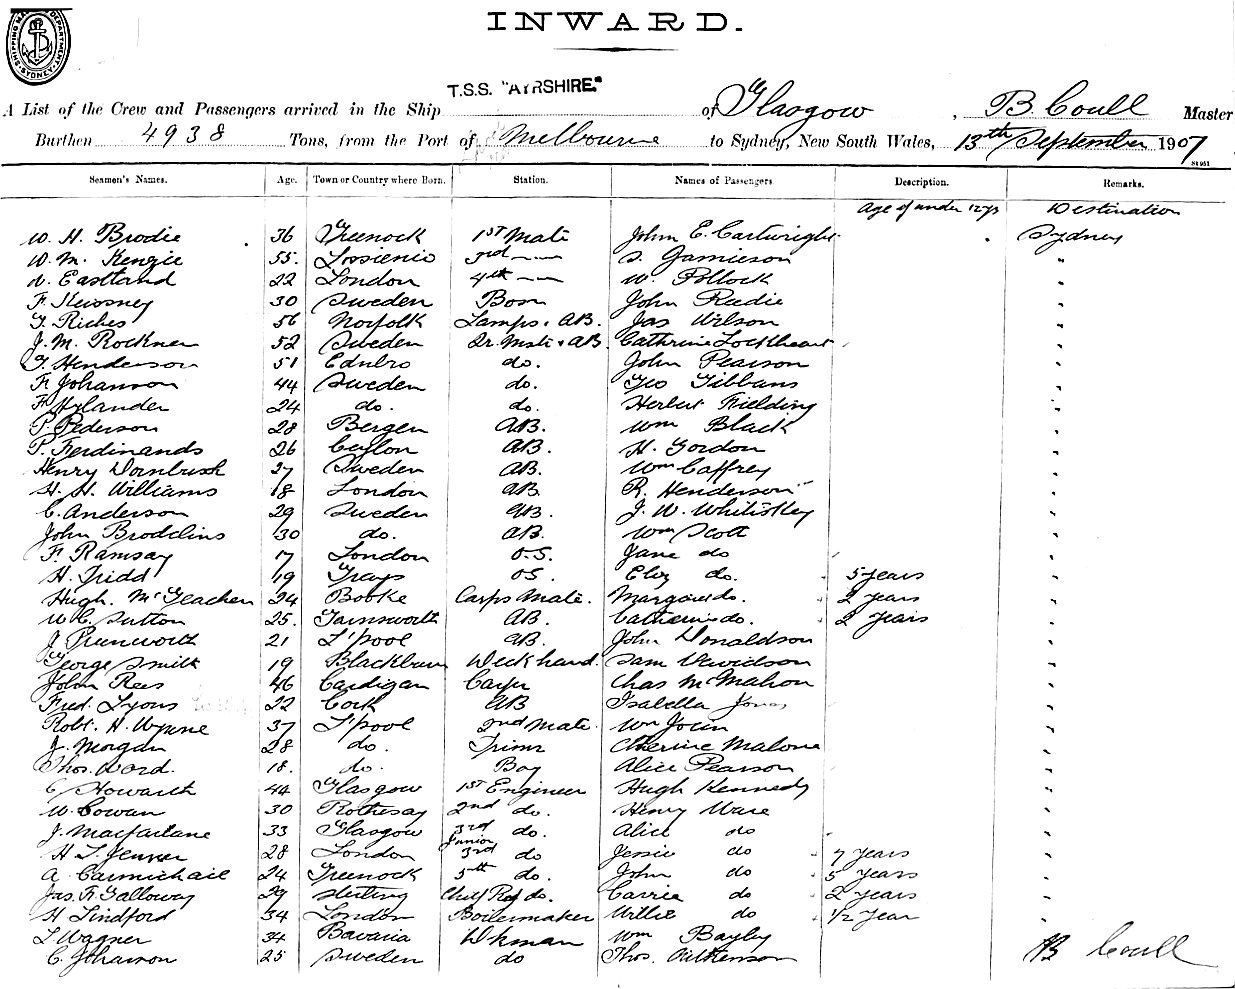 SHIPPING MASTER'S DEPARTMENT SYDNEY
INWARD.
A List of the Crew and Passengers arrived in the Ship T.S.S. "AYRSHIRE." of Glasgow, B Coull Master
Burthen 4938 Tons, from the Port of Melbourne to Sydney, New South Wales, 13th September 1907
S1951
Seamen's Names. Age. Town or Country where Born. Station. Names of Passengers Description. Remarks.
Age if under 12 yrs Destination
W. H. Brodie 36 Greenock 1st Mate John E. Cartwright Sydney
W. M. Kengie 55. 3rd — S. Jamieson "
Eastland 22 London 4th — W. Pollock "
F. 30 Sweden Bosn John Redie "
Riches 56 Norfolk Lamps. AB. Jas Wilson "
J. M. Rockner 52 Sweden Dr. Mate & AB. Catherine Lockheart "
T. Henderson 51 Ednbro do. John Pearson "
F. Johanson 44 Sweden do. Geo Gibbans "
F. Hylander 24 do. do. Herbert Fielding "
P. Pederson 28 Bergen AB. Wm Black "
P. Ferdinands 26 Ceylon AB. H. Gordon "
Henry Dornbusch 27 Sweden AB. Wm Caffrey "
H. H. Williams 18 London AB. R. Henderson "
C. Anderson 29 Sweden AB. J. W. Whitistley "
John Brodelins 30 do. AB. Wm Scott "
F. Ramsay 17 London O.S. Jane do "
H. Tridd 19 Grays OS. do. 5 years "
Hugh. McGeachen 24 Carps Mate. Margaret do. 2 years "
W. C. Sutton 25. Farnsworth AB. Catherine do. 2 years "
J. Prunworth 21 L'pool AB. John Donaldson "
George Smith 19 Blackburn Deck hand. Sam Davidson "
John Rees 46 Cardigan Carpr Chas McMahon "
Fred. Lyons 22 Cork AB Isabella Jones "
Robt. H. Wynne 37 L'pool 2nd Mate. Wm "
J. Morgan 28 do. Trimr Malone "
Thos. Ward. 18. do. Boy Alice Pearson "
C. Howarth 44 Glasgow 1st Engineer Hugh Kennedy "
W. Cowan 30 Rothesay 2nd do. Henry Ware "
J. Macfarlane 33 Glasgow 3rd do. Alice do "
H. T. Jenner 28 London Junior 3rd do Jessie do 7 years "
A Carmichail 24 Greenock 5th do. John do 5 years "
Jas. F. Galloway 29 Stirling Chief Ref do. Carrie do 2 years "
H Lindford 34 London Boilermaker Willie do 1/2 year "
L Wagner 34 Bavaria Wkman Wm Bayley
C. Johanson 25 Sweden do Thos. Aitkenson
B Coull